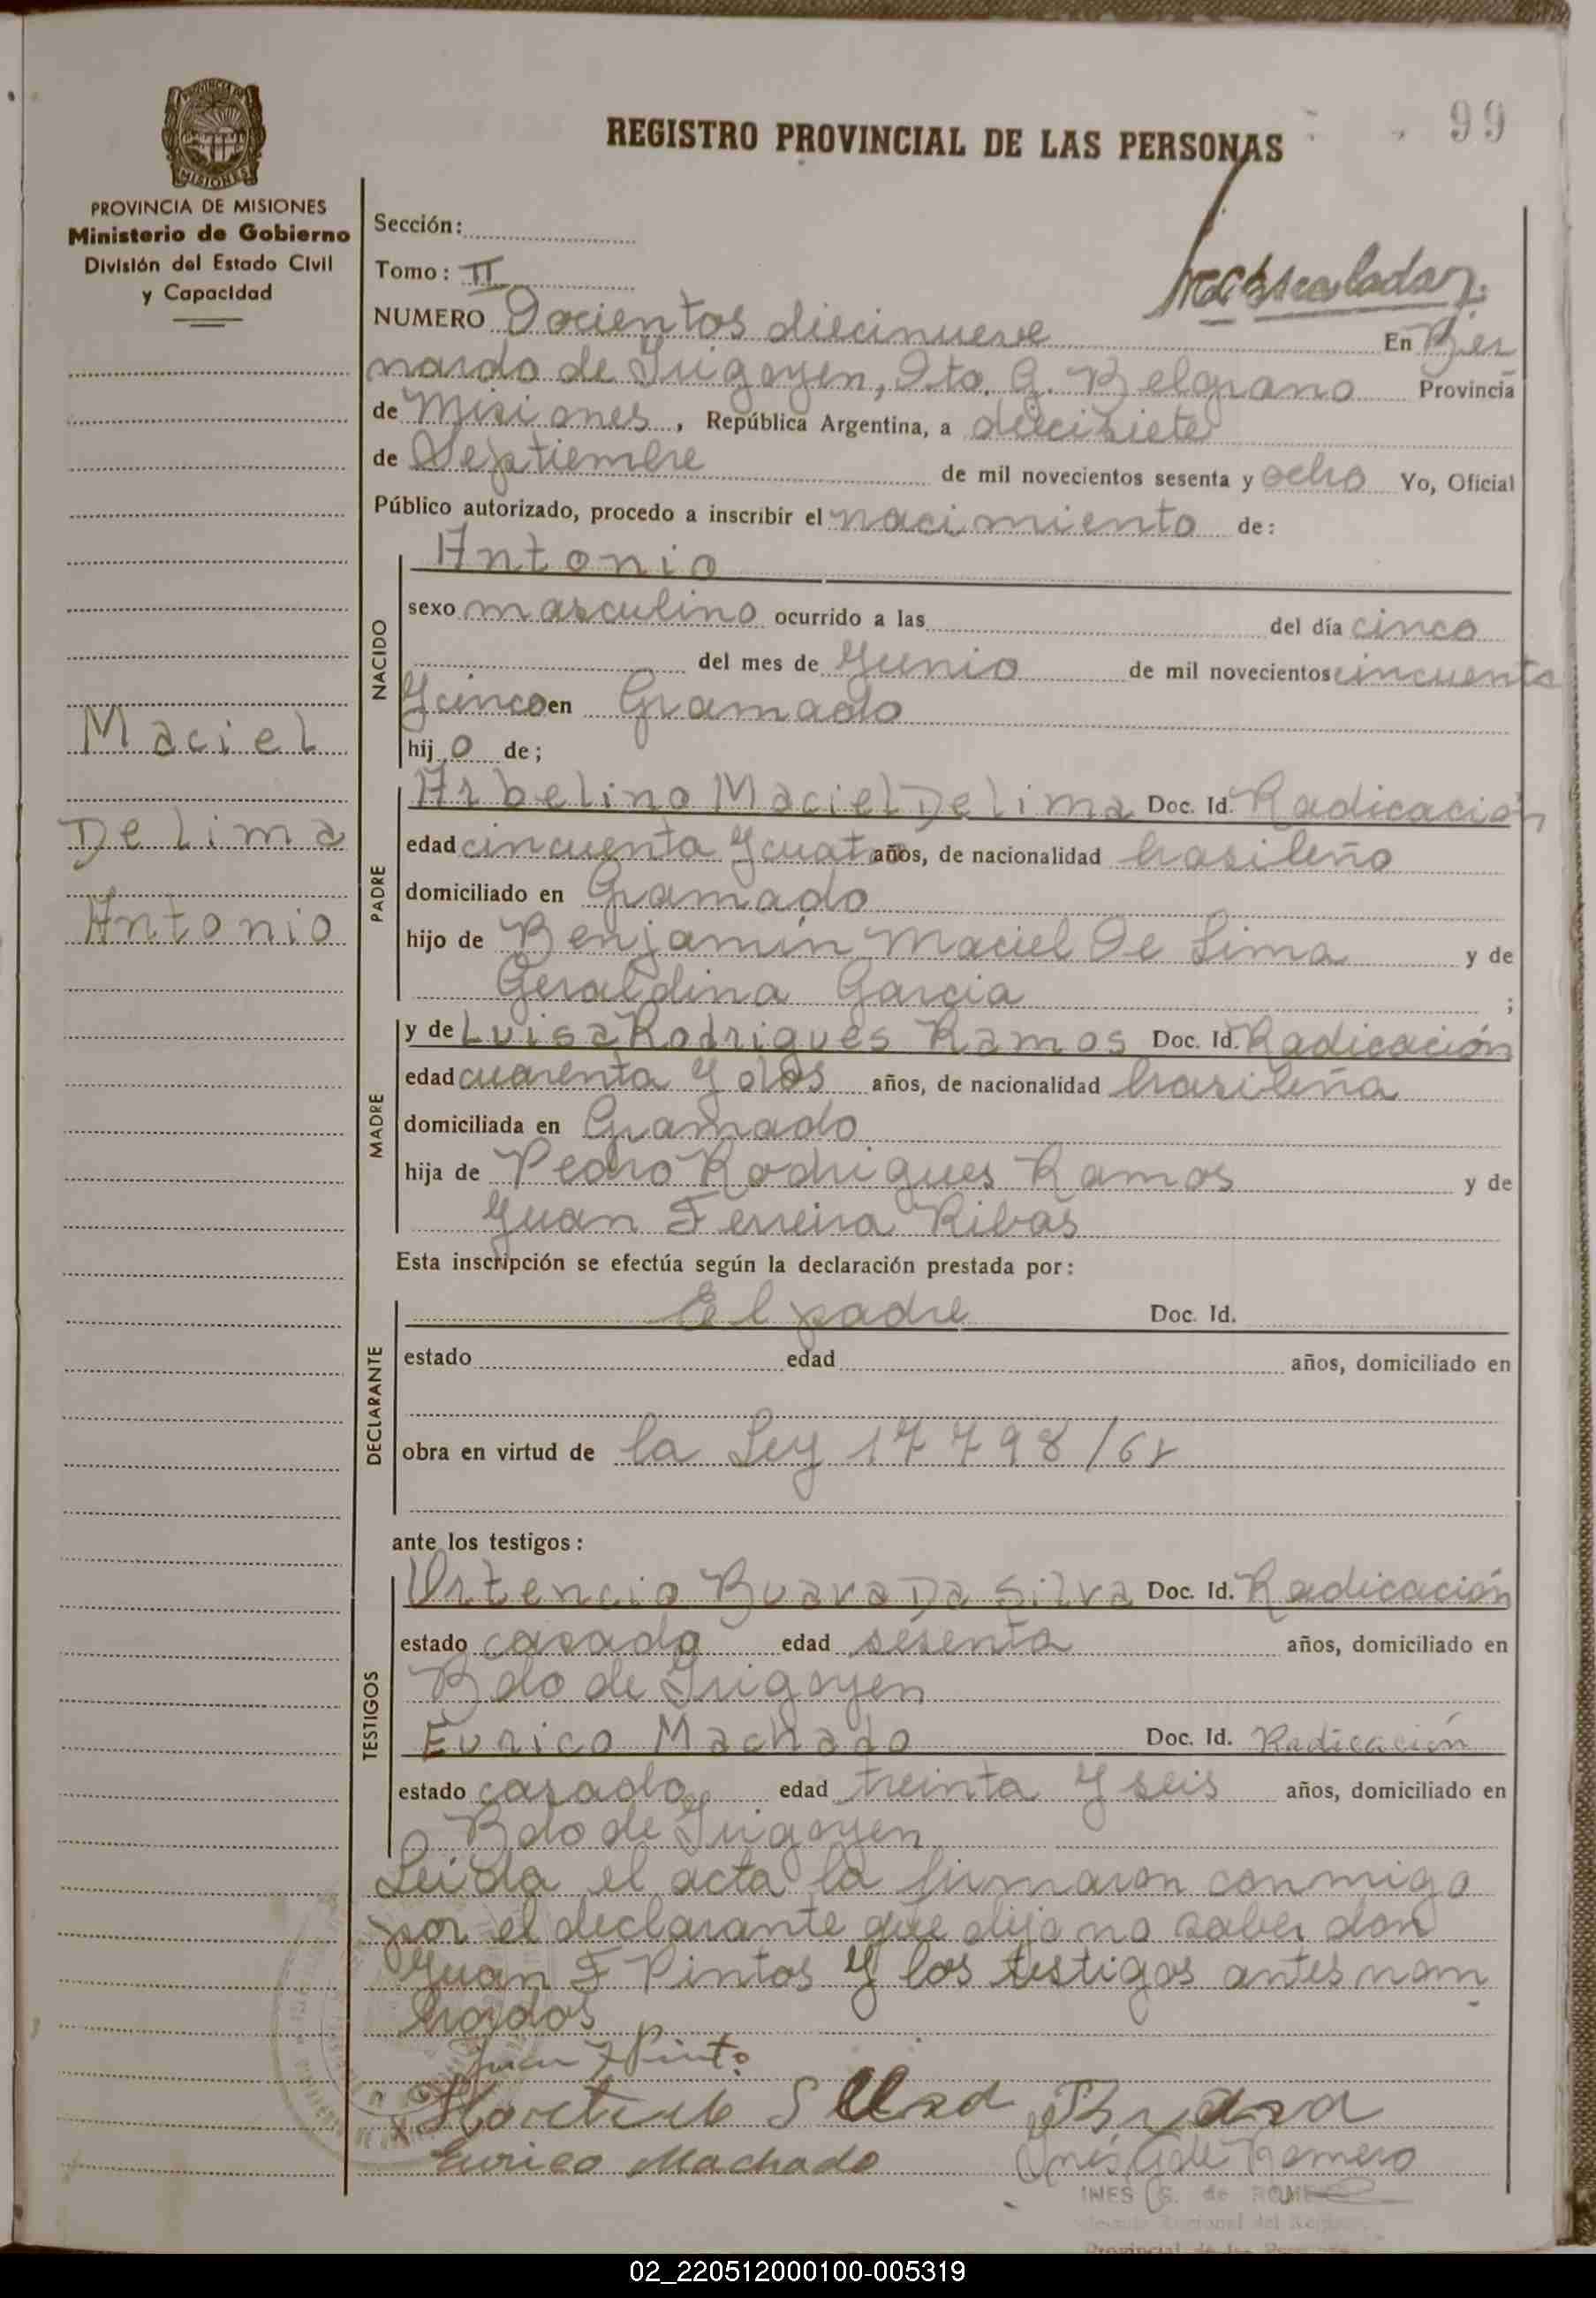 99
REGISTRO PROVINCIAL DE LAS PERSONAS
MISIONES
PROVINCIA DE MISIONES
Ministerio de Gobierno
División del Estado Civil
y Capacidad
Sección:
Tomo: II
NUMERO Docientos diecinueve En Ber
nardo de Irigoyen, Dto. G. Belgrano Provincia
de Misiones, República Argentina, a diecisiete
de Septiembre de mil novecientos sesenta y ocho Yo, Oficial
Público autorizado, procedo a inscribir el nacimiento de:
NACIDO
Antonio
sexo masculino ocurrido a las del día cinco
del mes de Junio de mil novecientos cincuenta
y cinco en Gramado
hij o de;
Maciel
De Lima
Antonio
PADRE
Arbelino Maciel De Lima Doc. Id. Radicación
edad cincuenta y cuatro años, de nacionalidad brasileño
domiciliado en Gramado
hijo de Benjamin Maciel De Lima y de
Geraldina Garcia ;
MADRE
y de Luisa Rodrigues Ramos Doc. Id. Radicación
edad cuarenta y dos años, de nacionalidad brasileña
domiciliada en Gramado
hija de Pedro Rodrigues Ramos y de
Juan Ferreira Ribas
Esta inscripción se efectúa según la declaración prestada por:
DECLARANTE
El padre Doc. Id.
estado edad años, domiciliado en
obra en virtud de la Ley 17798/68
ante los testigos:
TESTIGOS
Ortencio Buava Da Silva Doc. Id. Radicación
estado casado edad sesenta años, domiciliado en
Bdo de Irigoyen
Eurico Machado Doc. Id. Radicación
estado casado edad treinta y seis años, domiciliado en
Bdo de Irigoyen
Leida el acta la firmaron conmigo
por el declarante que dijo no saber don
Juan F Pintos y los testigos antes nom
brados
Juan F Pinto
Eurico Machado
Inés G de Romero
INES G. de ROMERO
02_220512000100-005319